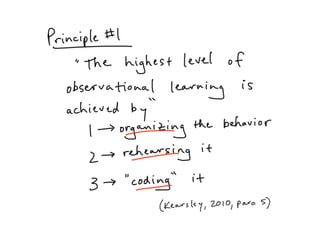 Principle #1
"The highest level of
observational learning is
achieved by"
1 → organizing the behavior
2 → rehearsing it
3 → "coding" it
(Kearsley, 2010, para 5)